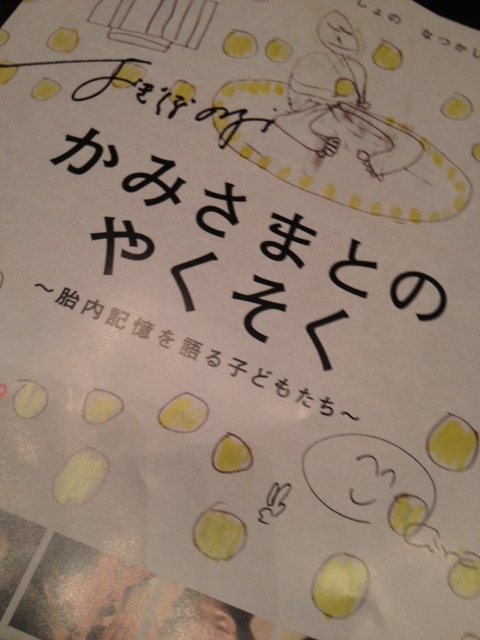 しょの なつかし
かみさまとの
やくそく
～胎内記憶を語る子どもたち～